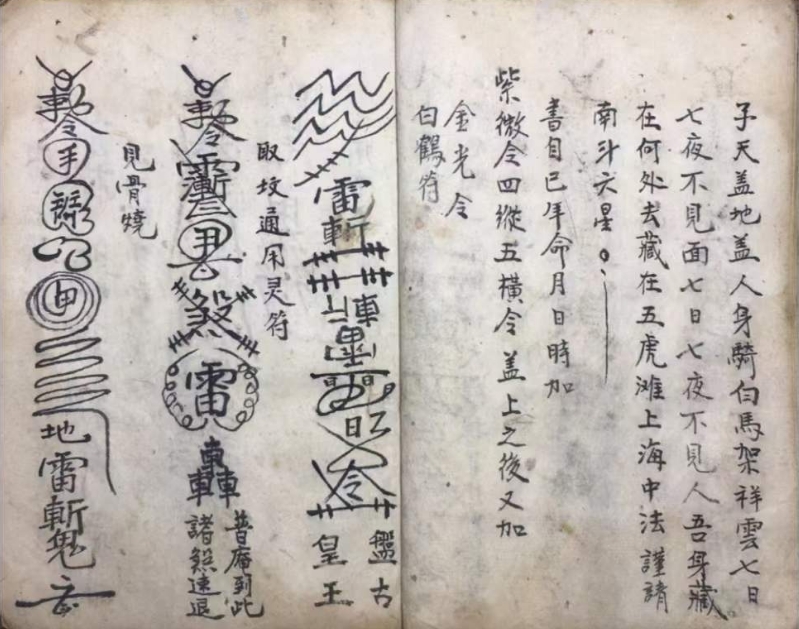 子天盖地盖人身騎白馬架祥雲七日
七夜不見面七日七夜不見人吾身藏
在何处去藏在五虎滩上海中法謹請
南斗六星
書自己年命月日時加
紫微令四縱五横令盖上之後又加
金光令
白鶴符
雷斬
令
盤古
皇王
取坟通用灵符
敕令
煞
雷
轟
普庵到此
諸煞速退
見骨燒
敕令
地雷斬鬼